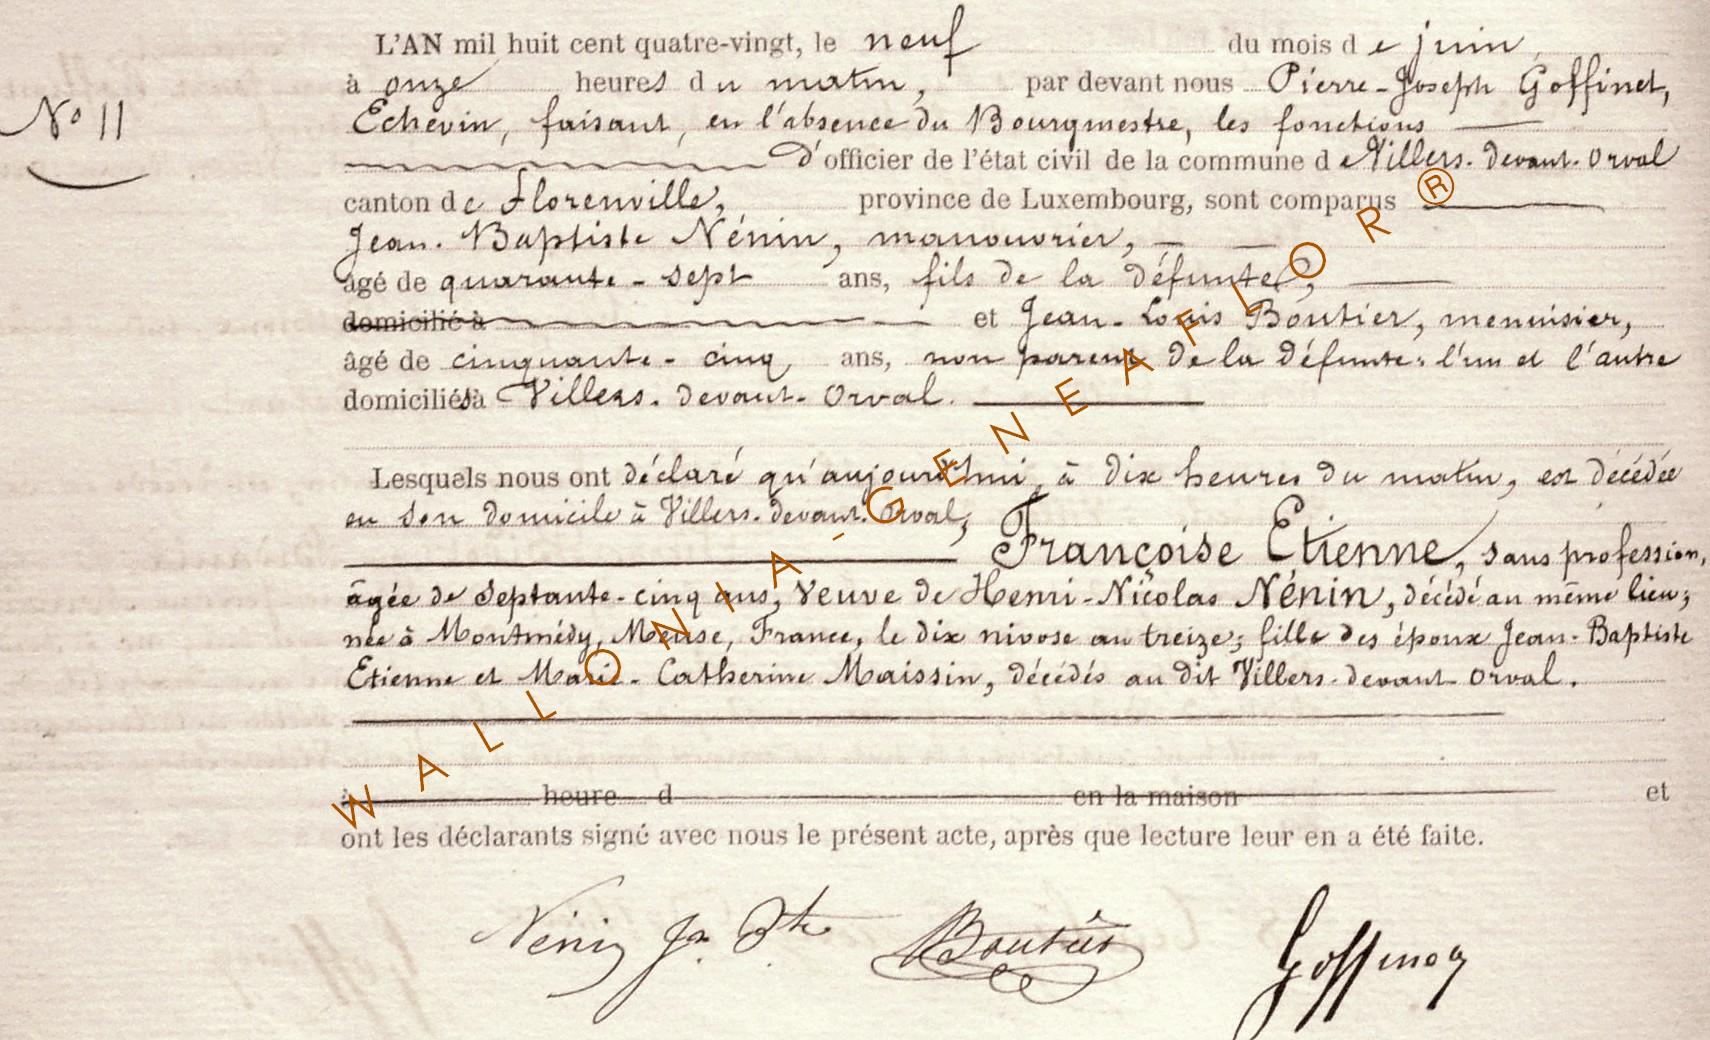 L'AN mil huit cent quatre-vingt, le neuf du mois de juin,
à onze heures du matin, par devant nous Pierre-Joseph Goffinet,
N° 11
Echevin, faisant, en l'absence du Bourgmestre, les fonctions
d'officier de l'état civil de la commune de Villers-devant-Orval
canton de Florenville, province de Luxembourg, sont comparus
Jean-Baptiste Nénin, manouvrier,
âgé de quarante-sept ans, fils de la défunte,
domicilié à et Jean-Louis Boutier, menuisier,
âgé de cinquante-cinq ans, non parent de la défunte; l'un et l'autre
domiciliés à Villers-devant-Orval.
Lesquels nous ont déclaré qu'aujourd'hui, à dix heures du matin, est décédée
en son domicile à Villers-devant-Orval,
Françoise Etienne, sans profession,
âgée de septante-cinq ans, veuve de Henri-Nicolas Nénin, décédé au même lieu;
née à Montmédy, Meuse, France, le dix nivose an treize; fille des époux Jean-Baptiste
Etienne et Marie-Catherine Maissin, décédés au dit Villers-devant-Orval.
à heure d en la maison et
ont les déclarants signé avec nous le présent acte, après que lecture leur en a été faite.
Nénin Jn Bte Boutier Goffinet
WALLONIA-GENEAFLOR®